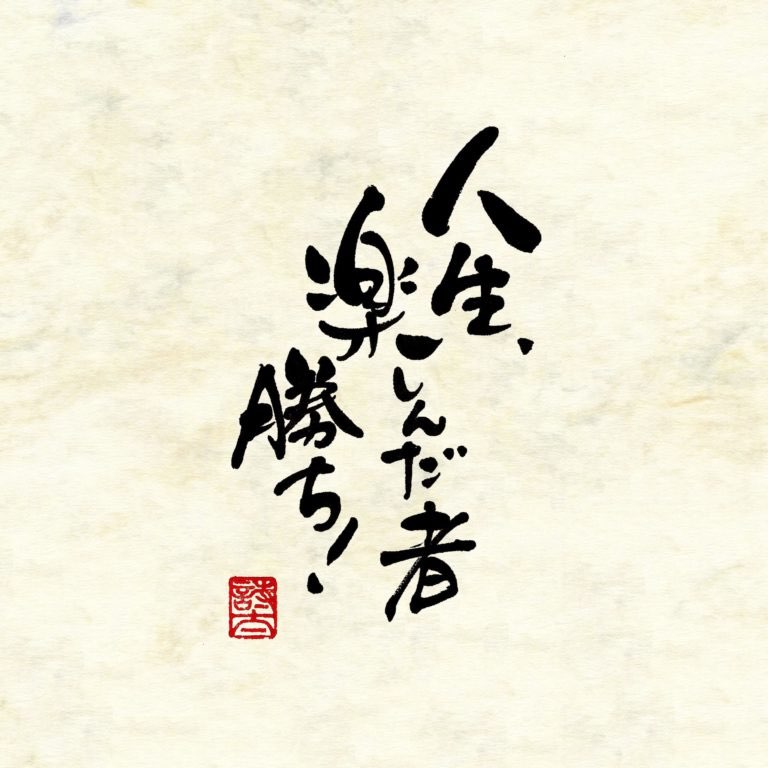 人生、
楽しんだ者
勝ち!